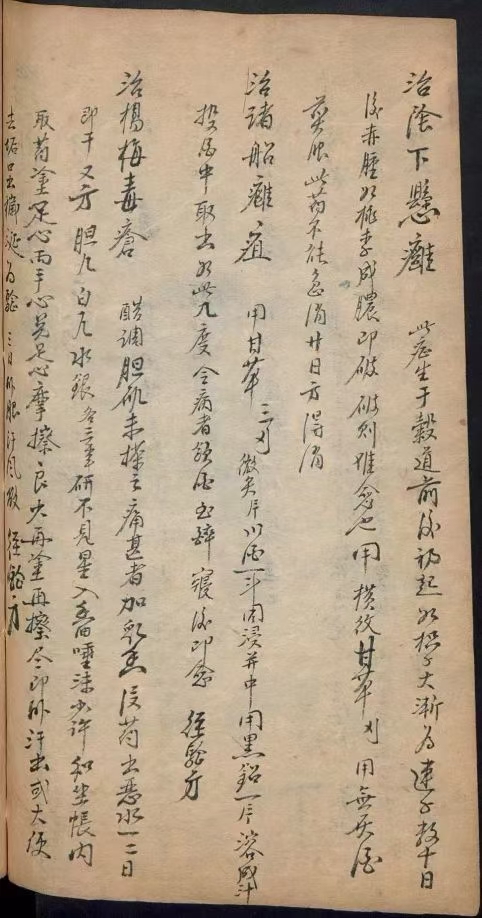 治陰下懸癰 此症生于穀道前後初起如松子大漸為蓮子數十日
後赤腫如桃李成膿即破破則難愈也用橫紋甘草 用無灰酒
煎服此药不能急消廿日方得消
治諸般癰疽 用甘草三 微炙片以酒一斗同浸并中用黑鉛一片溶成汁
投酒中取出如此九度令病者飲酒至醉寢後即愈 經驗方
治楊梅毒瘡 醋調胆矾末搽之痛甚者加乳香沒药出惡水一二日
即干又方 胆凡白凡水銀各三 研不見星入香油唾沫少許和坐帳內
取药塗足心兩手心足心摩擦良久再塗再擦尽即卧汗出或大便
去垢 為驗三日 經驗方